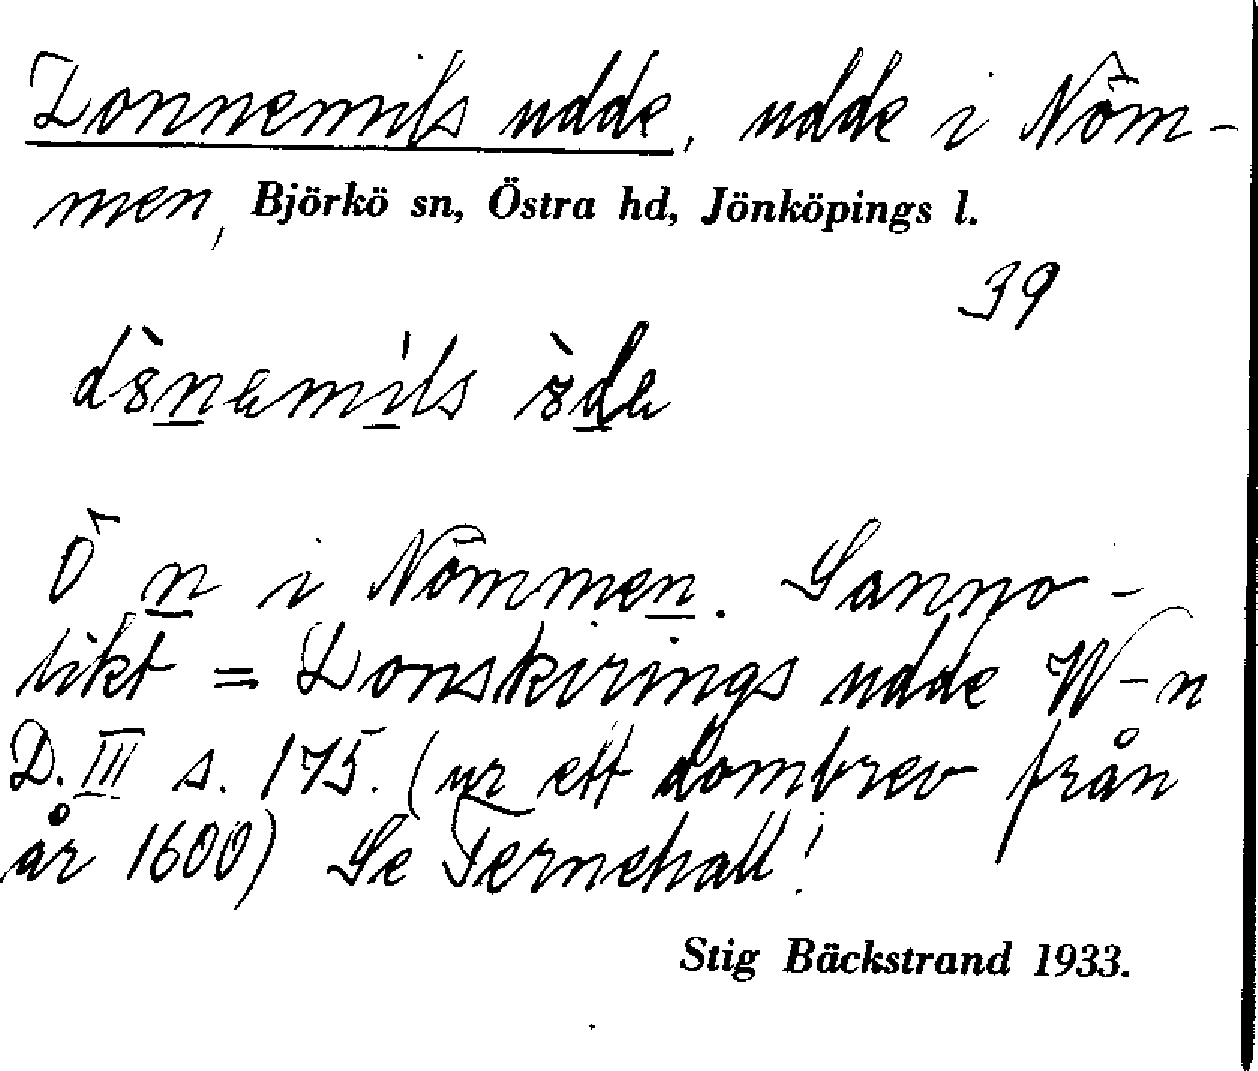 Donnemils udde, udde i Nöm-
men, Björkö sn, Östra hd, Jönköpings l.
39
Ö n i Nömmen. Sanno-
likt = Donskirings udde W-n
D. III s. 175. (ur ett dombrev från
år 1600) Se Ternehall!
Stig Bäckstrand 1933.